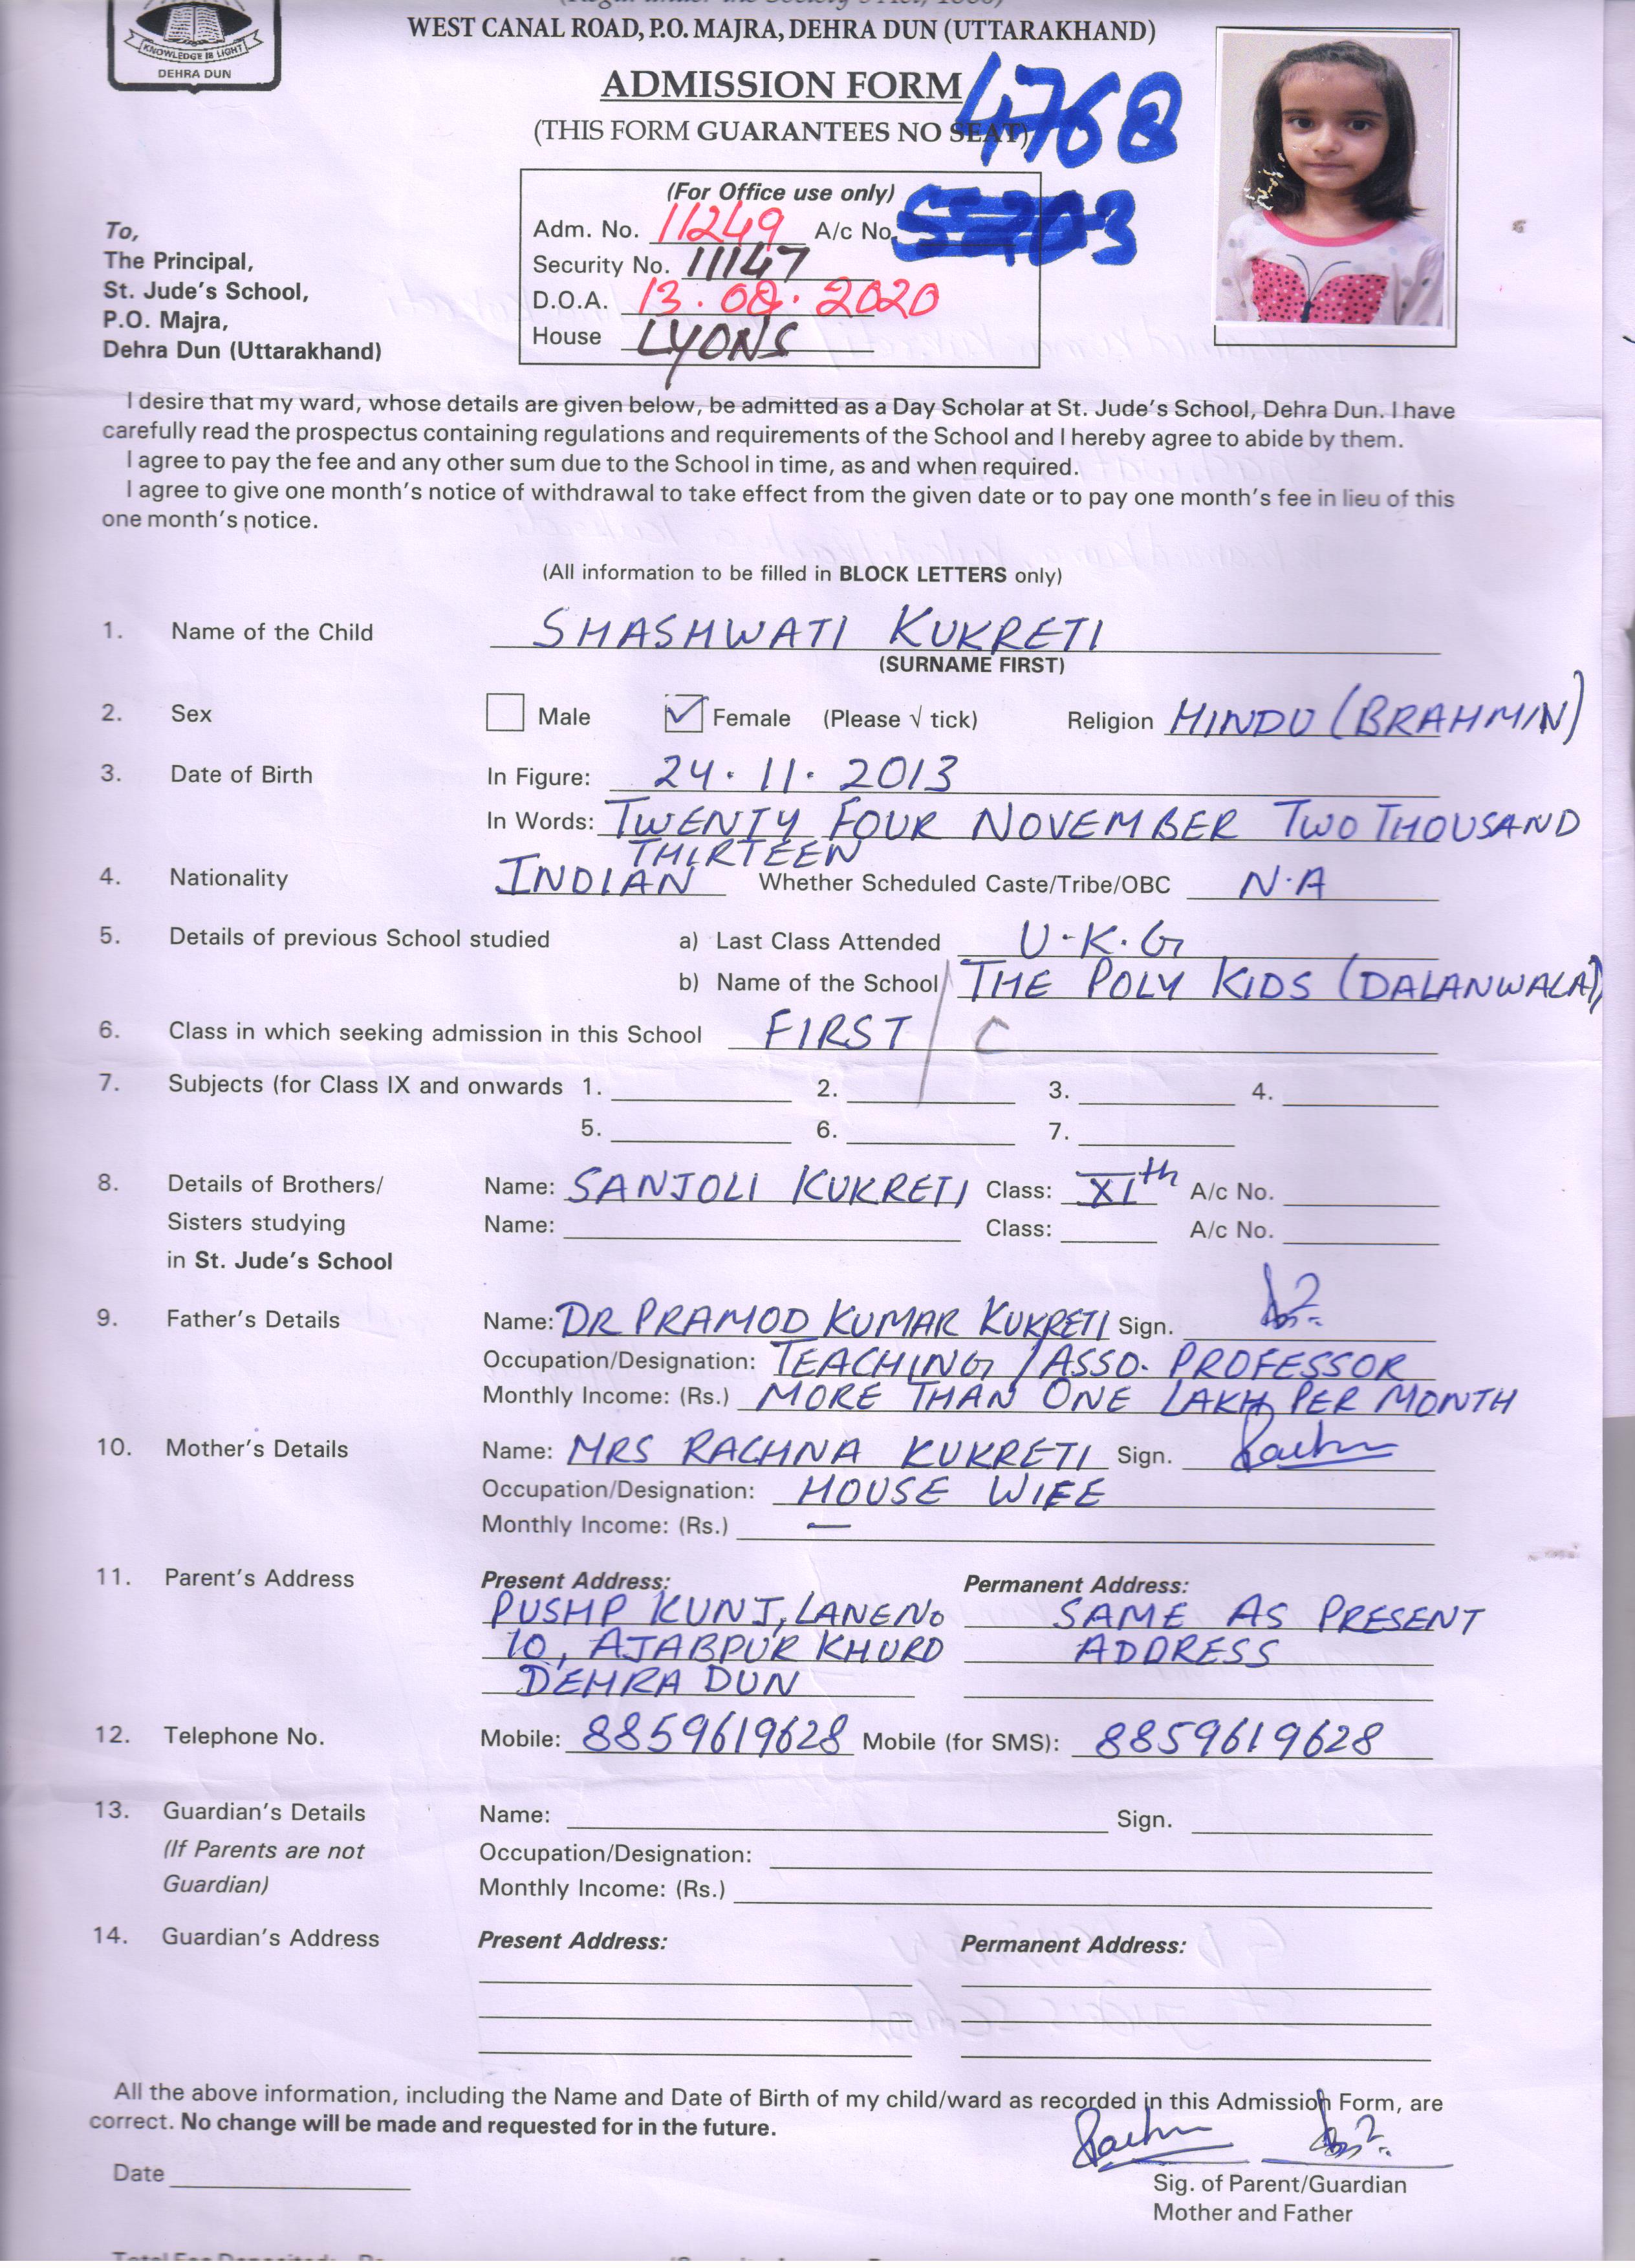 KNOWLEDGE IS LIGHT
DEHRA DUN
WEST CANAL ROAD, P.O. MAJRA, DEHRA DUN (UTTARAKHAND)
ADMISSION FORM
4768
(THIS FORM GUARANTEES NO SEAT)
(For Office use only)
Adm. No. 11249 A/c No.
Security No. 11147
D.O.A. 13.08.2020
House LYONS
To,
The Principal,
St. Jude's School,
P.O. Majra,
Dehra Dun (Uttarakhand)
I desire that my ward, whose details are given below, be admitted as a Day Scholar at St. Jude's School, Dehra Dun. I have
carefully read the prospectus containing regulations and requirements of the School and I hereby agree to abide by them.
I agree to pay the fee and any other sum due to the School in time, as and when required.
I agree to give one month's notice of withdrawal to take effect from the given date or to pay one month's fee in lieu of this
one month's notice.
(All information to be filled in BLOCK LETTERS only)
1. Name of the Child SHASHWATI KUKRETI
(SURNAME FIRST)
2. Sex Male Female (Please √ tick) Religion HINDU (BRAHMIN)
3. Date of Birth In Figure: 24.11.2013
In Words: TWENTY FOUR NOVEMBER TWO THOUSAND
THIRTEEN
4. Nationality INDIAN Whether Scheduled Caste/Tribe/OBC N.A
5. Details of previous School studied a) Last Class Attended U.K.G
b) Name of the School THE POLY KIDS (DALANWALA)
6. Class in which seeking admission in this School FIRST / C
7. Subjects (for Class IX and onwards 1. 2. 3. 4.
5. 6. 7.
8. Details of Brothers/ Name: SANJOLI KUKRETI Class: XIth A/c No.
Sisters studying Name: Class: A/c No.
in St. Jude's School
9. Father's Details Name: DR PRAMOD KUMAR KUKRETI Sign.
Occupation/Designation: TEACHING / ASSO. PROFESSOR
Monthly Income: (Rs.) MORE THAN ONE LAKH PER MONTH
10. Mother's Details Name: MRS RACHNA KUKRETI Sign. Rachna
Occupation/Designation: HOUSE WIFE
Monthly Income: (Rs.) —
11. Parent's Address Present Address: Permanent Address:
PUSHP KUNJ, LANE NO SAME AS PRESENT
10, AJABPUR KHURD ADDRESS
DEHRA DUN
12. Telephone No. Mobile: 8859619628 Mobile (for SMS): 8859619628
13. Guardian's Details Name: Sign.
(If Parents are not Occupation/Designation:
Guardian) Monthly Income: (Rs.)
14. Guardian's Address Present Address: Permanent Address:
All the above information, including the Name and Date of Birth of my child/ward as recorded in this Admission Form, are
correct. No change will be made and requested for in the future.
Rachna
Date
Sig. of Parent/Guardian
Mother and Father